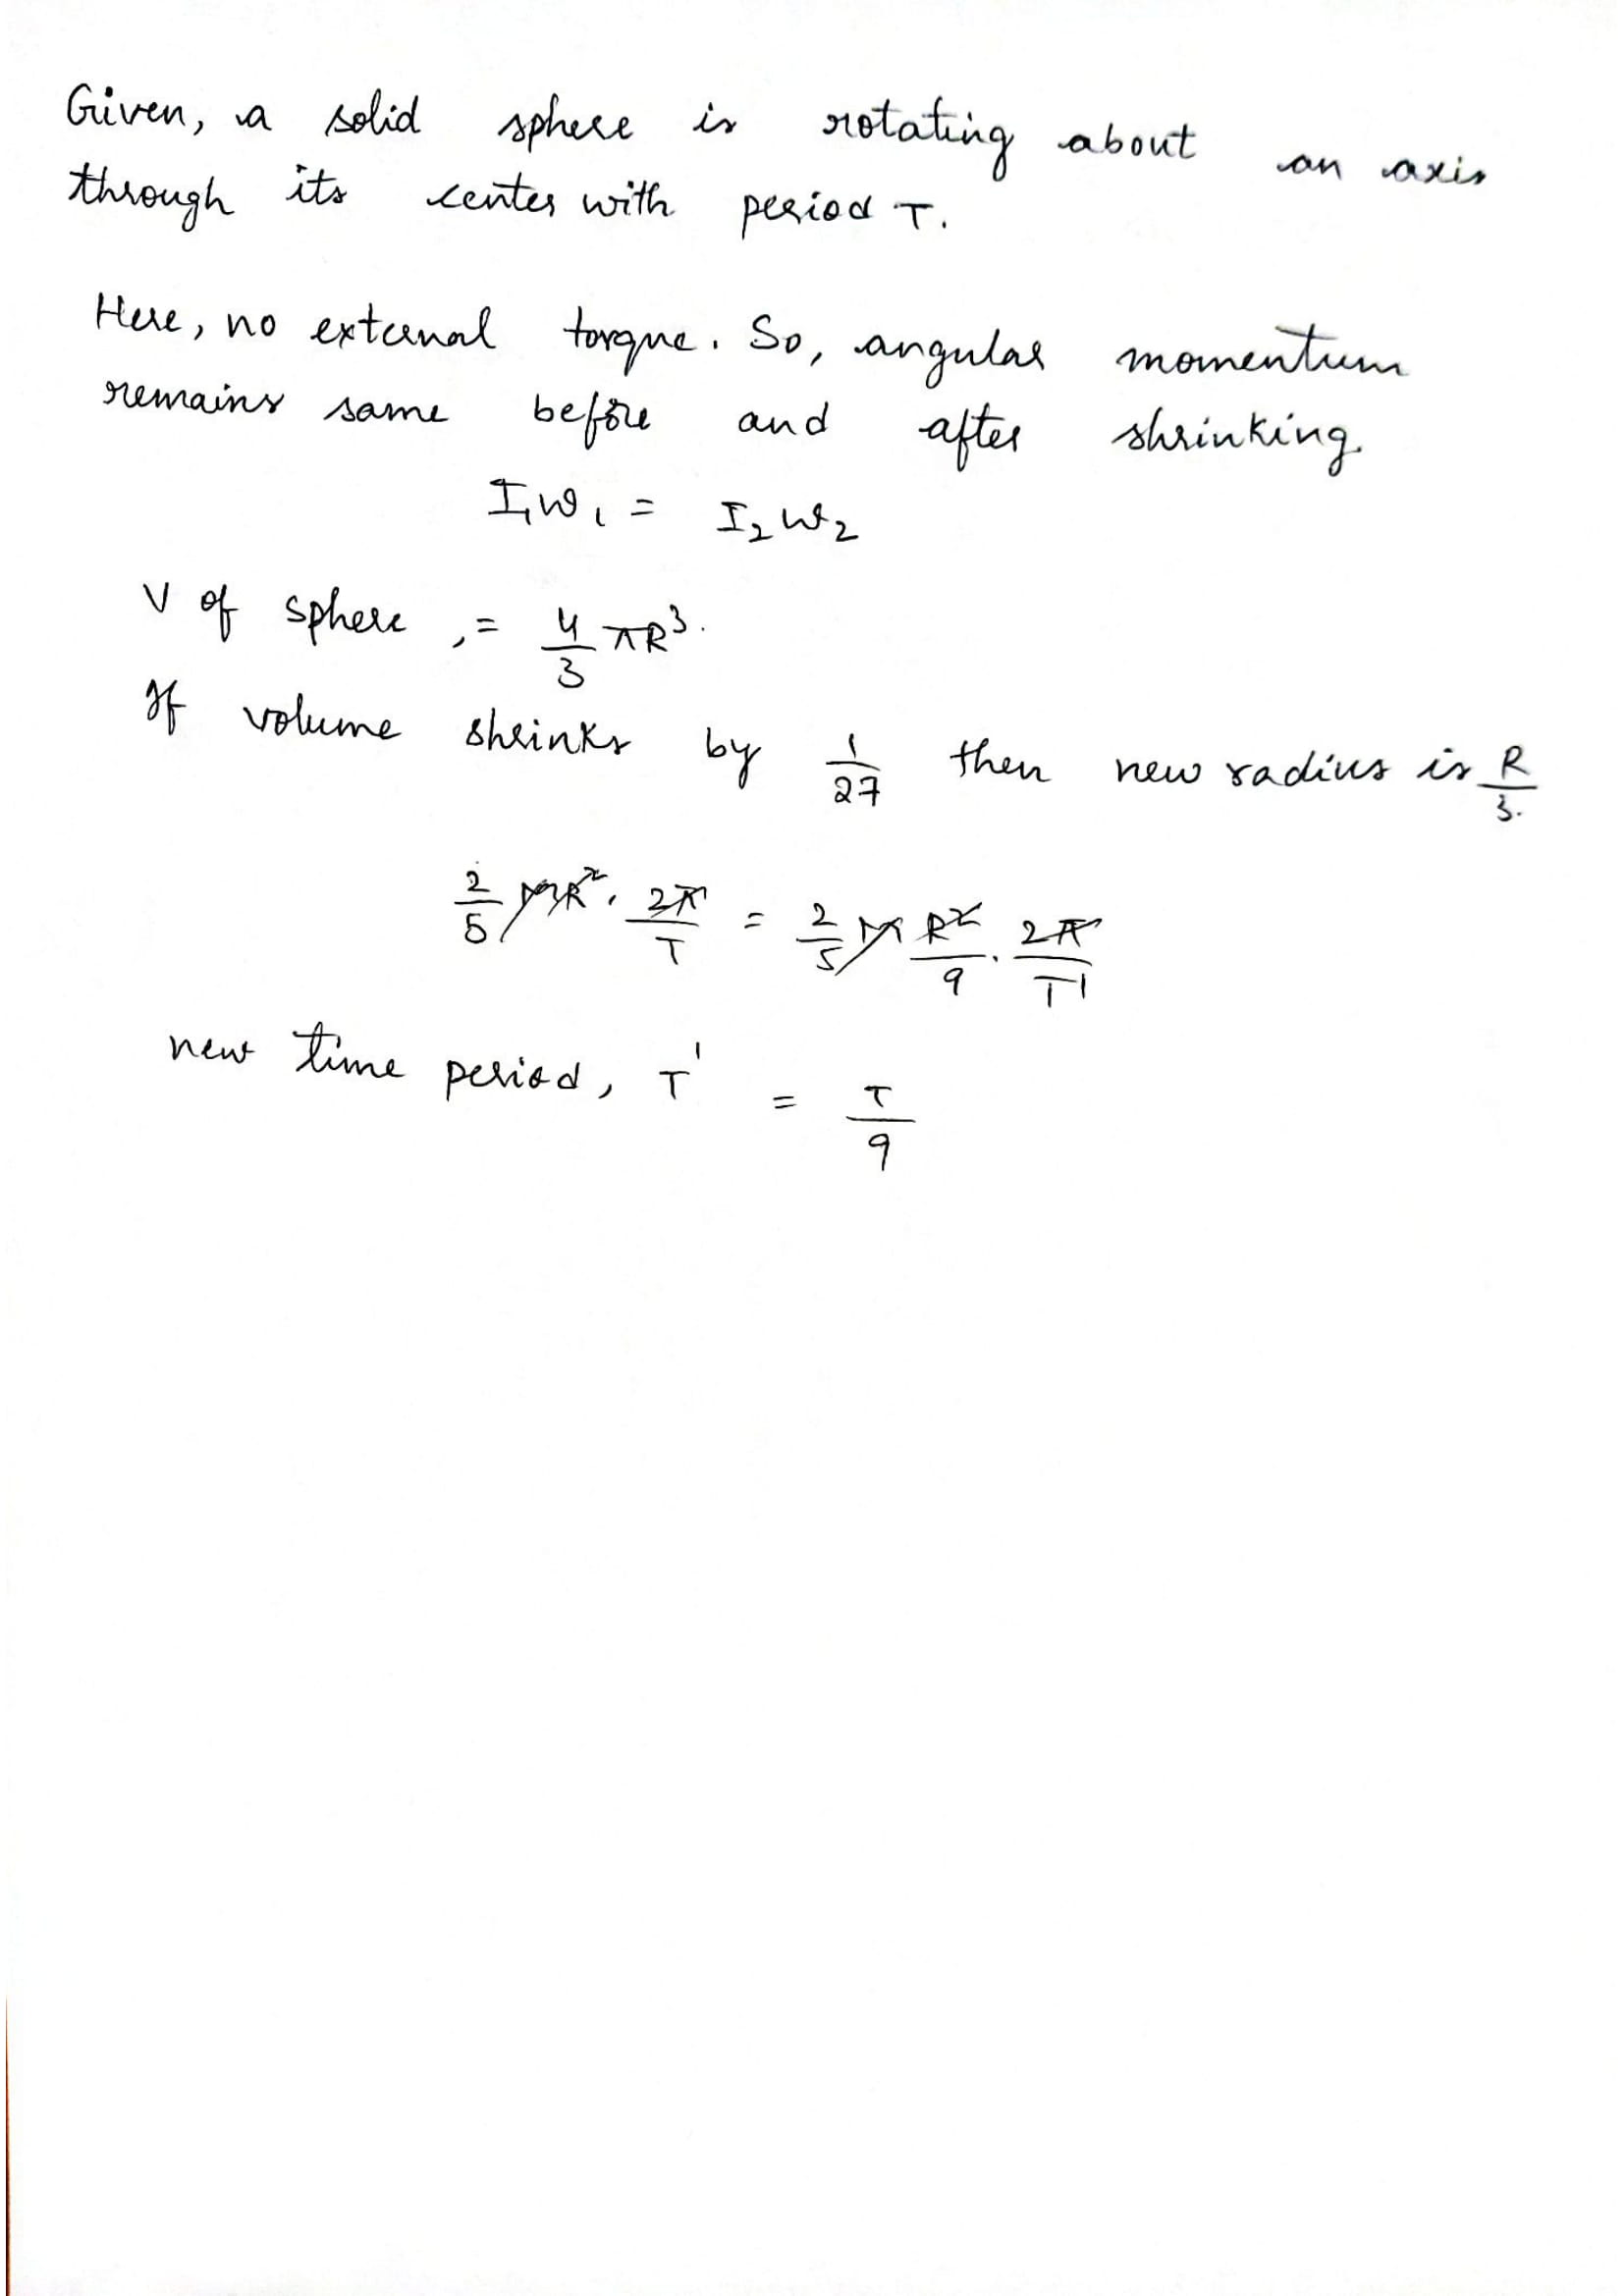 Given, a solid sphere is rotating about an axis
through its center with period T.
Here, no external torque. So, angular momentum
remains same before and after shrinking.
I₁ω₁ = I₂ω₂
V of sphere, = 4/3 πR³.
If volume shrinks by 1/27 then new radius is R/3.
2/5 MR² · 2π/T = 2/5 M R²/9 · 2π/T'
new time period, T' = T/9